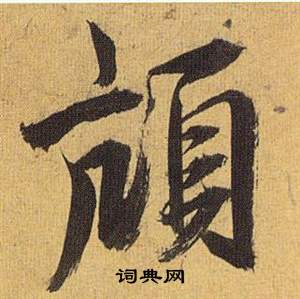 頏
词典网